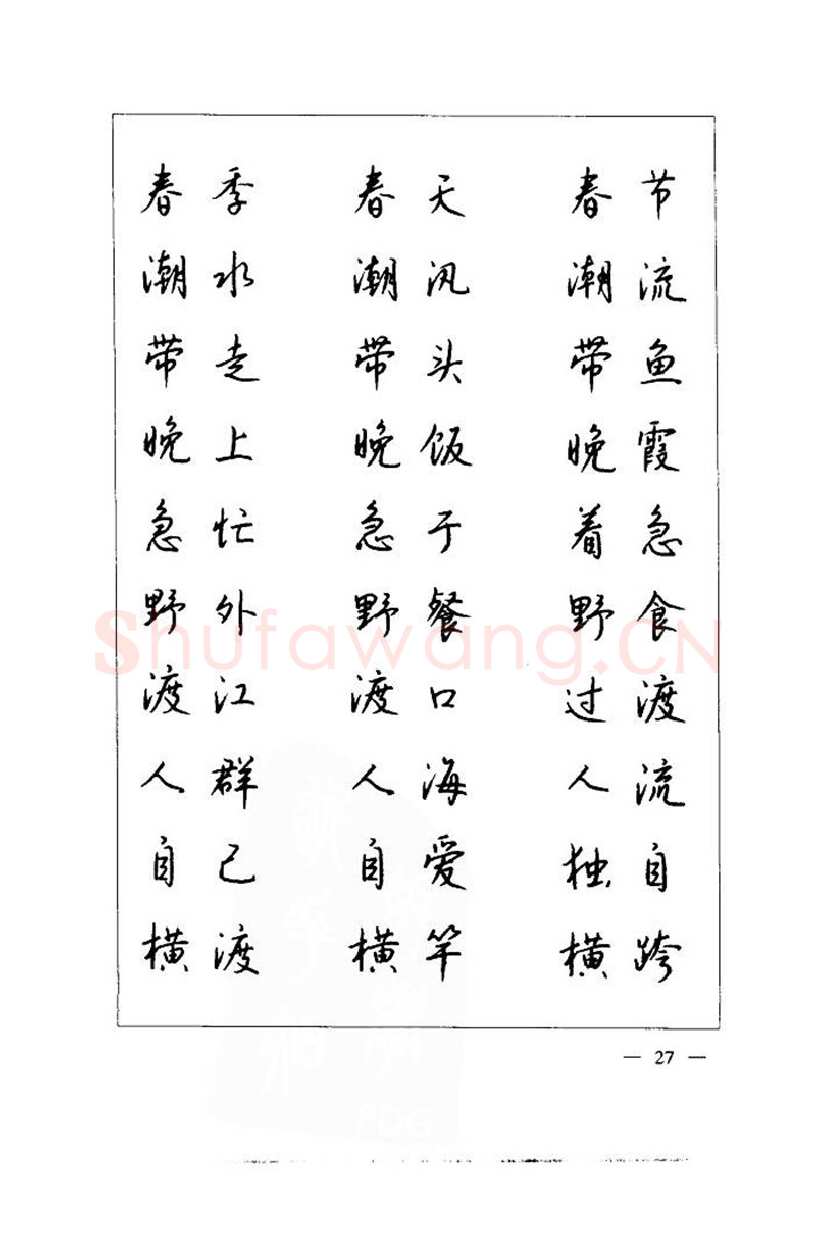 春季 春天 春节
潮水 潮汛 潮流
带走 带头 带鱼
晚上 晚饭 晚霞
急忙 急于 着急
野外 野餐 野食
渡江 渡口 过渡
人群 人海 人流
自己 自爱 独自
横渡 横竿 横跨
Shufawang.CN
— 27 —